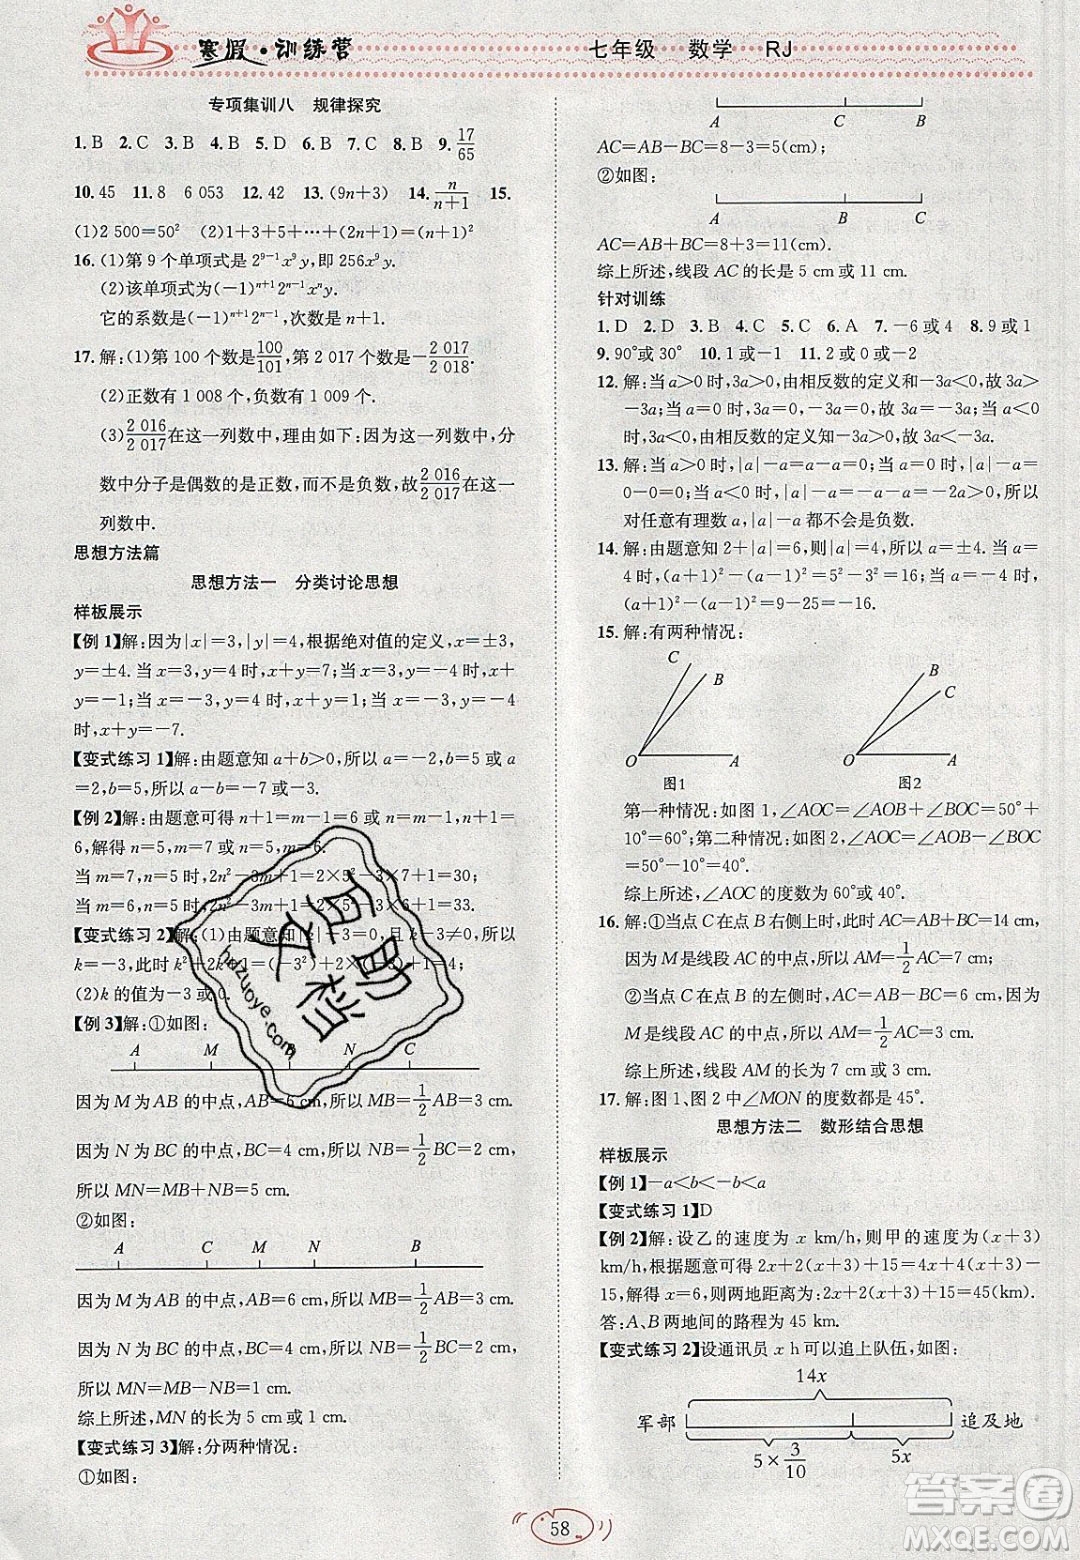 寒假·训练营
七年级 数学 RJ
专项集训八 规律探究
1.B 2.C 3.B 4.B 5.D 6.B 7.C 8.B 9.17/65
10.45 11.8 6 053 12.42 13.(9n+3) 14.n/(n+1) 15.
(1)2 500=50² (2)1+3+5+…+(2n+1)=(n+1)²
16.(1)第 9 个单项式是 2⁹⁻¹x⁹y,即 256x⁹y.
(2)该单项式为(-1)ⁿ⁺¹2ⁿ⁻¹xⁿy.
它的系数是(-1)ⁿ⁺¹2ⁿ⁻¹,次数是 n+1.
17.解:(1)第 100 个数是100/101,第 2 017 个数是-2 017/2 018.
(2)正数有 1 008 个,负数有 1 009 个.
(3)2 016/2 017在这一列数中,理由如下:因为这一列分
数中分子是偶数的是正数,而其他的是负数,故2 016/2 017在这一
列数中.
思想方法篇
思想方法一 分类讨论思想
样板展示
【例 1】解:因为|x|=3,|y|=4,根据绝对值的定义,x=±3,
y=±4.当 x=3,y=4 时,x+y=7;当 x=-3,y=4 时,
x+y=1;当 x=3,y=-4 时,x+y=-1;当 x=-3,y=-4 时,
x+y=-7.
【变式练习 1】解:由题意知 a+b>0,所以 a=-2,b=5 或 a
=2,b=5.所以 a-b=-7 或-3.
【例 2】解:由题意可得 n+1=6,m-1=6 或 n+1=m-1=
6,解得 m=7,n=5 或 m=7,n=5.
当 m=7,n=5 时,2n²-3m+1=2×5²-3×7+1=30.
当 m=6,n=5 时,2n²-3m+1=2×5²-3×6+1=33.
【变式练习 2】解:(1)由题意知|k|-3=0,且 k-3≠0,所以
k=-3,此时 k²+2k+1=(-3)²+2×(-3)+1=4.
(2)k 的值为-3 或 0.
【例 3】解:①如图:
A M B N C
因为 M 为 AB 的中点,AB=6 cm,所以 MB=1/2AB=3 cm.
因为 N 为 BC 的中点,BC=4 cm,所以 NB=1/2BC=2 cm.
所以 MN=MB+NB=5 cm.
②如图:
A C M N B
因为 M 为 AB 的中点,AB=6 cm,所以 MB=1/2AB=3 cm.
因为 N 为 BC 的中点,BC=4 cm,所以 NB=1/2BC=2 cm.
所以 MN=MB-NB=1 cm.
综上所述,MN 的长为 5 cm 或 1 cm.
【变式练习 3】解:分两种情况:
①如图:
A C B
AC=AB-BC=8-3=5(cm);
②如图:
A B C
AC=AB+BC=8+3=11(cm).
综上所述,线段 AC 的长是 5 cm 或 11 cm.
针对训练
1.D 2.D 3.B 4.C 5.C 6.A 7.-6 或 4 8.9 或 1
9.90°或 30° 10.1 或-1 11.2 或 0 或-2
12.解:当 a>0 时,3a>0,由相反数的定义和-3a<0,故 3a>
-3a;当 a=0 时,3a=0,由相反数的定义知-3a=0,故
3a=-3a;当 a<0 时,3a<0,由相反数的定义知-3a>0,故 3a<-3a.
13.解:当 a>0 时,|a|-a=a-a=0;当 a=0 时,|a|-a=
0-0=0;当 a<0 时,|a|-a=-a-a=-2a>0,所以
对任意有理数 a,|a|-a 都不会是负数.
14.解:由题意知 2+|a|+1=6,则|a|=3,所以 a=±3.当 a=
3 时,(a+1)²-2a²+3a=5;当 a=-3 时,
(a+1)²-2a²+3a+1=9-…=-16.
15.解:有两种情况:
C B O A
B C O A
图1
图2
第一种情况:如图 1,∠AOC=∠AOB+∠BOC=50°+
10°=60°;第二种情况:如图 2,∠AOC=∠AOB-∠BOC
=50°-10°=40°.
综上所述,∠AOC 的度数为 60°或 40°.
16.解:①当点 C 在点 B 右侧上时,此时 AC=AB+BC=14 cm,
因为 M 是线段 AC 的中点,所以 AM=1/2AC=7 cm.
②当点 C 在点 B 的左侧时,AC=AB-BC=6 cm,因为
M 是线段 AC 的中点,所以 AM=1/2AC=3 cm.
综上所述,线段 AM 的长为 7 cm 或 3 cm.
17.解:图 1、图 2 中∠MON 的度数都是 45°.
思想方法二 数形结合思想
样板展示
【例 1】-a<b<-b<a
【变式练习 1】D
【例 2】解:设乙的速度为 x km/h,则甲的速度为(x+3)
km/h,根据题意可得 2x+2(x+3)+15=4x+4(x+3)-
15,解得 x=6,则两地距离为 2x+2(x+3)+15=45(km).
答:A、B 两地间的路程为 45 km.
【变式练习 2】设通讯员 x h 可以追上队伍,如图:
14x
军部 追及地
5×3/10 5x
58
互助文档
hazuoye.com
答案圈
MXQE.COM